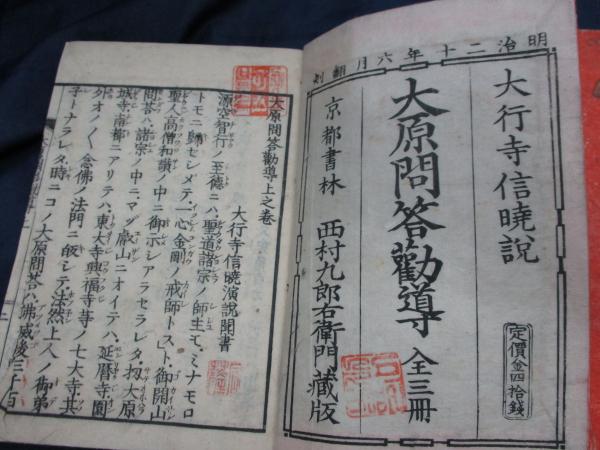 明治二十年六月翻刻
大行寺信曉説
大原問答勸導 全三冊
定價金四拾錢
京都書林 西村九郎右衛門藏版
大原問答勸導上之卷
大行寺信曉演説聞書
源空智行ノ至徳ニハ聖道諸宗ノ師主モミナモロ
トモニ歸セシメテ一心金剛ノ戒師トスト御開山
聖人高僧和讃ノ中ニ御示シアラセラレタ扨大原
問答ハ諸宗ノ中ニマヅ叡山ニオイテハ延暦寺園
城寺南都ニアリテハ東大寺興福寺等ノ七大寺其
外オノ〱念佛ノ法門ニ皈シテ法然上人ノ御弟
子トナラレタ時ニコノ大原問答ハ佛滅後二千百